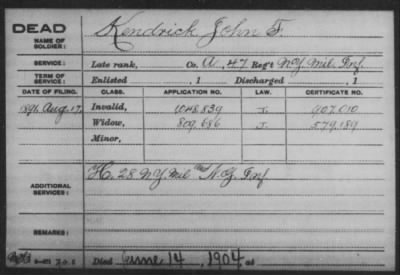 DEAD
NAME OF SOLDIER: Kendrick, John F.
SERVICE: Late rank, Co. A, 47 Reg't N.Y. Mil. Inf.
TERM OF SERVICE: Enlisted , 1 Discharged , 1
DATE OF FILING. CLASS. APPLICATION NO. LAW. CERTIFICATE NO.
1891 Aug. 17, Invalid, 1048.839 J. 907.010
Widow, 809.686 J. 579.189
Minor,
ADDITIONAL SERVICES: H, 28 N.Y. Mil. N.G. Inf.
REMARKS:
Died June 14, 1904, at